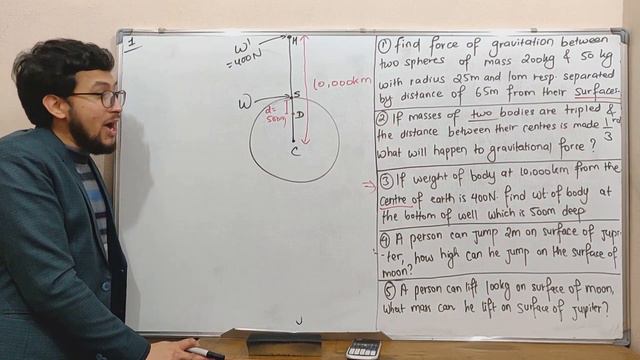 1
H
W'
=400N
10,000km
W
S
d=
500m
D
C
① find force of gravitation between
two spheres of mass 200kg & 50 kg
with radius 25m and 10m resp. separated
by distance of 65m from their surfaces.
② If masses of two bodies are tripled &
the distance between their centres is made 1/3 rd
what will happen to gravitational force ?
⇒ ③ If weight of body at 10,000km from the
centre of earth is 400N. find wt. of body at
the bottom of well which is 500m deep
④ A person can jump 2m on surface of jupi-
-ter, how high can he jump on the surface of
moon?
⑤ A person can lift 100kg on surface of moon,
what mass can he lift on surface of jupiter?